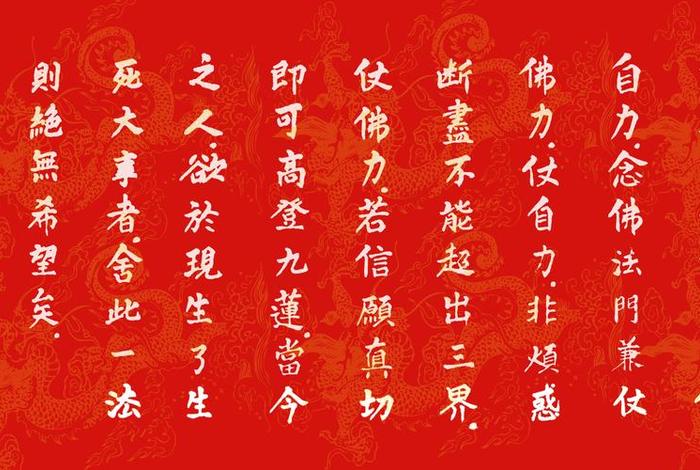 自力.念佛法門兼仗
佛力.仗自力.非煩惑
断盡不能超出三界.
仗佛力.若信願真切
即可高登九蓮.當今
之人.欲於現生了生
死大事者.舍此一法
則絕無希望矣.